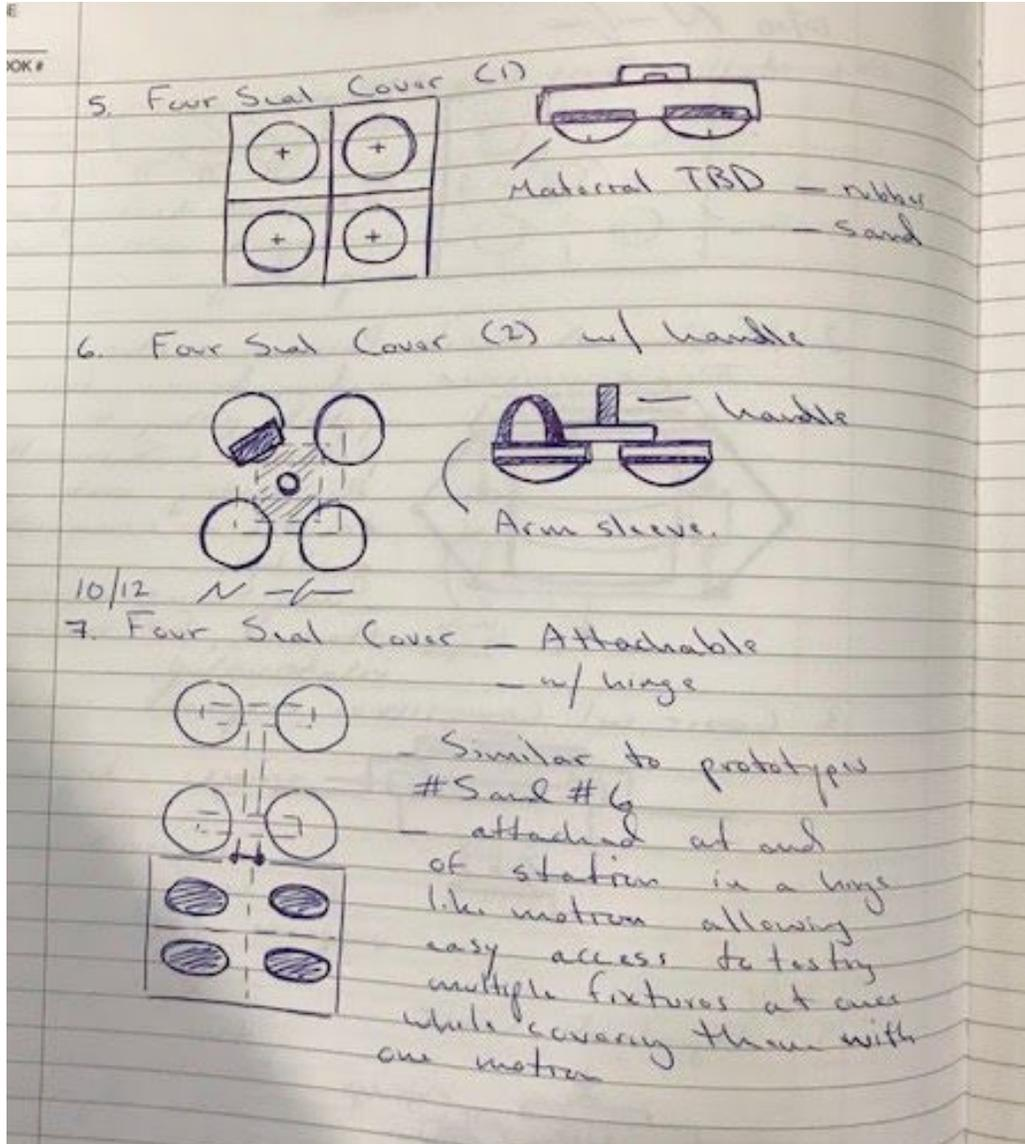 E
OOK #
5. Four Seal Cover (1)
Material TBD – rubber
– Sand
6. Four Seal Cover (2) w/ handle
– handle
Arm sleeve.
10/12
7. Four Seal Cover – Attachable
– w/ hinge
– Similar to prototypes
#5 and #6
– attached at end
of station in a hinge
like motion allowing
easy access to testing
multiple fixtures at once
while covering them with
one motion